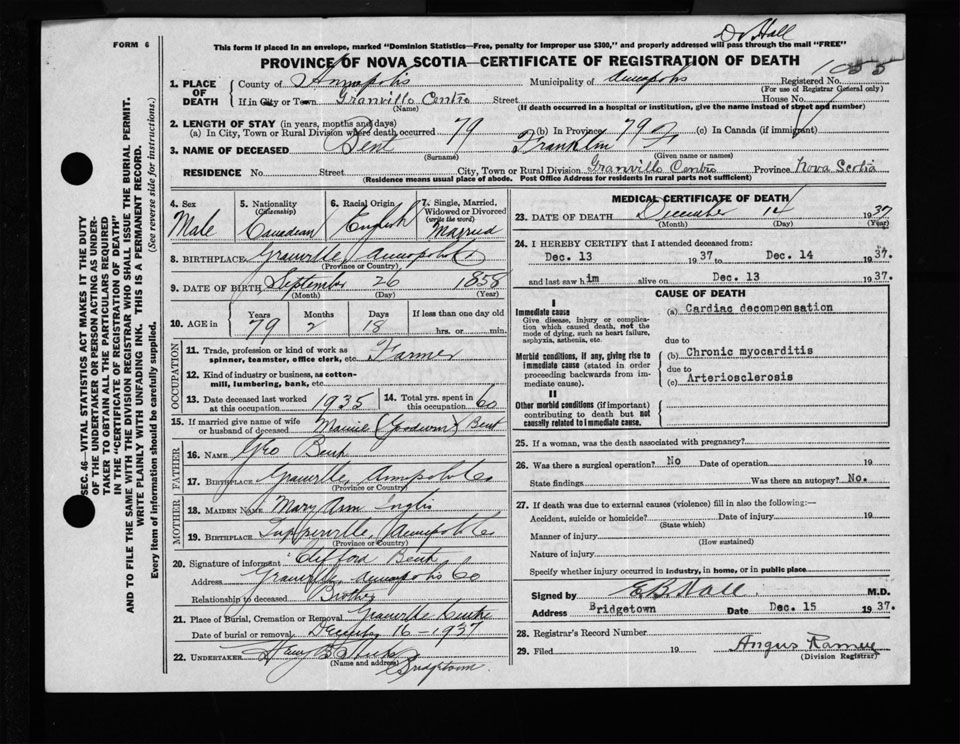 Dr Hall
FORM 6
This form if placed in an envelope, marked "Dominion Statistics—Free, penalty for improper use $300," and properly addressed will pass through the mail "FREE"
PROVINCE OF NOVA SCOTIA—CERTIFICATE OF REGISTRATION OF DEATH
1. PLACE OF DEATH County of Annapolis Municipality of Annapolis Registered No.
(For use of Registrar General only)
If in City or Town Granville Centre Street House No.
(Name) (If death occurred in a hospital or institution, give the name instead of street and number)
2. LENGTH OF STAY (in years, months and days)
(a) In City, Town or Rural Division where death occurred 79 (b) In Province 79 (c) In Canada (if immigrant)
3. NAME OF DECEASED Bent Franklin
(Surname) (Given name or names)
RESIDENCE No. Street City, Town or Rural Division Granville Centre Province Nova Scotia
(Residence means usual place of abode. Post Office Address for residents in rural parts not sufficient)
SEC. 46—VITAL STATISTICS ACT MAKES IT THE DUTY
OF THE UNDERTAKER OR PERSON ACTING AS UNDER-
TAKER TO OBTAIN ALL THE PARTICULARS REQUIRED
IN THE "CERTIFICATE OF REGISTRATION OF DEATH"
AND TO FILE THE SAME WITH THE DIVISION REGISTRAR WHO SHALL ISSUE THE BURIAL PERMIT.
WRITE PLAINLY WITH UNFADING INK. THIS IS A PERMANENT RECORD.
Every item of information should be carefully supplied. (See reverse side for instructions.)
4. Sex 5. Nationality (Citizenship) 6. Racial Origin 7. Single, Married, Widowed or Divorced (write the word)
Male Canadian English Married
8. BIRTHPLACE Granville Annapolis Co
(Province or Country)
9. DATE OF BIRTH September 26 1858
(Month) (Day) (Year)
10. AGE in Years Months Days If less than one day old
79 2 18 hrs. or min.
OCCUPATION
11. Trade, profession or kind of work as spinner, teamster, office clerk, etc. Farmer
12. Kind of industry or business, as cotton-mill, lumbering, bank, etc.
13. Date deceased last worked at this occupation 1935 14. Total yrs. spent in this occupation 60
15. If married give name of wife or husband of deceased (Goodwin) Bent
FATHER
16. NAME Geo Bent
17. BIRTHPLACE Granville, Annapolis Co
(Province or Country)
MOTHER
18. MAIDEN NAME Mary Ann Inglis
19. BIRTHPLACE Tupperville, Annapolis Co
(Province or Country)
20. Signature of informant Clifford Bent
Address Granville, Annapolis Co
Relationship to deceased Brother
21. Place of Burial, Cremation or Removal Granville Centre
Date of burial or removal December 16—1937
22. UNDERTAKER Bridgetown
(Name and address)
MEDICAL CERTIFICATE OF DEATH
23. DATE OF DEATH December 14 1937
(Month) (Day) (Year)
24. I HEREBY CERTIFY that I attended deceased from:
Dec. 13 1937 to Dec. 14 1937.
and last saw him alive on Dec. 13 1937.
CAUSE OF DEATH
I
Immediate cause
Give disease, injury or complication which caused death, not the mode of dying, such as heart failure, asphyxia, asthenia, etc.
(a) Cardiac decompensation
due to
Morbid conditions, if any, giving rise to immediate cause (stated in order proceeding backwards from immediate cause).
(b) Chronic myocarditis
due to
(c) Arteriosclerosis
II
Other morbid conditions (if important) contributing to death but not causally related to immediate cause.
25. If a woman, was the death associated with pregnancy?
26. Was there a surgical operation? No Date of operation 19
State findings Was there an autopsy? No.
27. If death was due to external causes (violence) fill in also the following:—
Accident, suicide or homicide? Date of injury 19
(State which)
Manner of injury
(How sustained)
Nature of injury
Specify whether injury occurred in industry, in home, or in public place
Signed by E B Hall M.D.
Address Bridgetown Date Dec. 15 1937.
28. Registrar's Record Number
29. Filed 19 Angus
(Division Registrar)